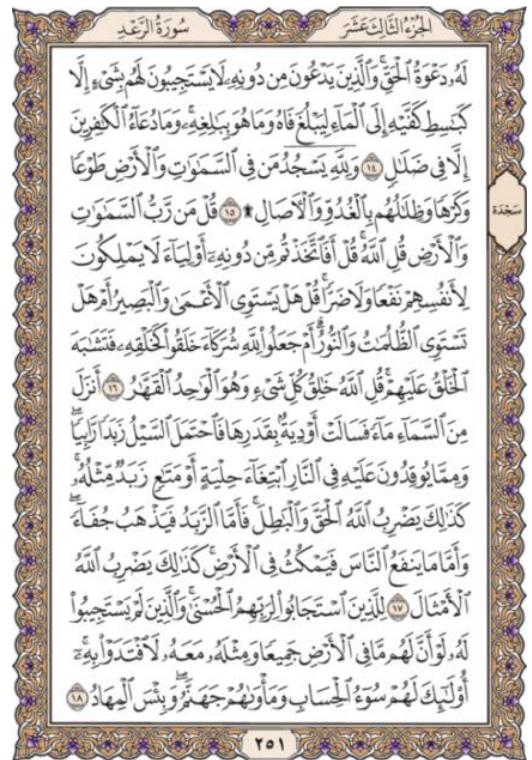 الجُزْءُ الثَّالِثَ عَشَرَ
سُورَةُ الرَّعْدِ
لَهُۥ دَعْوَةُ ٱلْحَقِّ ۖ وَٱلَّذِينَ يَدْعُونَ مِن دُونِهِۦ لَا يَسْتَجِيبُونَ لَهُم بِشَىْءٍ إِلَّا
كَبَـٰسِطِ كَفَّيْهِ إِلَى ٱلْمَآءِ لِيَبْلُغَ فَاهُ وَمَا هُوَ بِبَـٰلِغِهِۦ ۚ وَمَا دُعَآءُ ٱلْكَـٰفِرِينَ
إِلَّا فِى ضَلَـٰلٍ ١٤ وَلِلَّهِ يَسْجُدُ مَن فِى ٱلسَّمَـٰوَٰتِ وَٱلْأَرْضِ طَوْعًا
وَكَرْهًا وَظِلَـٰلُهُم بِٱلْغُدُوِّ وَٱلْـَٔاصَالِ ۩ ١٥ قُلْ مَن رَّبُّ ٱلسَّمَـٰوَٰتِ
سَجْدَة
وَٱلْأَرْضِ قُلِ ٱللَّهُ ۚ قُلْ أَفَٱتَّخَذْتُم مِّن دُونِهِۦٓ أَوْلِيَآءَ لَا يَمْلِكُونَ
لِأَنفُسِهِمْ نَفْعًا وَلَا ضَرًّا ۚ قُلْ هَلْ يَسْتَوِى ٱلْأَعْمَىٰ وَٱلْبَصِيرُ أَمْ هَلْ
تَسْتَوِى ٱلظُّلُمَـٰتُ وَٱلنُّورُ ۗ أَمْ جَعَلُوا۟ لِلَّهِ شُرَكَآءَ خَلَقُوا۟ كَخَلْقِهِۦ فَتَشَـٰبَهَ
ٱلْخَلْقُ عَلَيْهِمْ ۚ قُلِ ٱللَّهُ خَـٰلِقُ كُلِّ شَىْءٍ وَهُوَ ٱلْوَٰحِدُ ٱلْقَهَّـٰرُ ١٦ أَنزَلَ
مِنَ ٱلسَّمَآءِ مَآءً فَسَالَتْ أَوْدِيَةٌۢ بِقَدَرِهَا فَٱحْتَمَلَ ٱلسَّيْلُ زَبَدًا رَّابِيًا ۚ
وَمِمَّا يُوقِدُونَ عَلَيْهِ فِى ٱلنَّارِ ٱبْتِغَآءَ حِلْيَةٍ أَوْ مَتَـٰعٍ زَبَدٌ مِّثْلُهُۥ ۚ
كَذَٰلِكَ يَضْرِبُ ٱللَّهُ ٱلْحَقَّ وَٱلْبَـٰطِلَ ۚ فَأَمَّا ٱلزَّبَدُ فَيَذْهَبُ جُفَآءً ۖ
وَأَمَّا مَا يَنفَعُ ٱلنَّاسَ فَيَمْكُثُ فِى ٱلْأَرْضِ ۚ كَذَٰلِكَ يَضْرِبُ ٱللَّهُ
ٱلْأَمْثَالَ ١٧ لِلَّذِينَ ٱسْتَجَابُوا۟ لِرَبِّهِمُ ٱلْحُسْنَىٰ ۚ وَٱلَّذِينَ لَمْ يَسْتَجِيبُوا۟
لَهُۥ لَوْ أَنَّ لَهُم مَّا فِى ٱلْأَرْضِ جَمِيعًا وَمِثْلَهُۥ مَعَهُۥ لَٱفْتَدَوْا۟ بِهِۦٓ ۚ
أُو۟لَـٰٓئِكَ لَهُمْ سُوٓءُ ٱلْحِسَابِ وَمَأْوَىٰهُمْ جَهَنَّمُ ۖ وَبِئْسَ ٱلْمِهَادُ ١٨
٢٥١